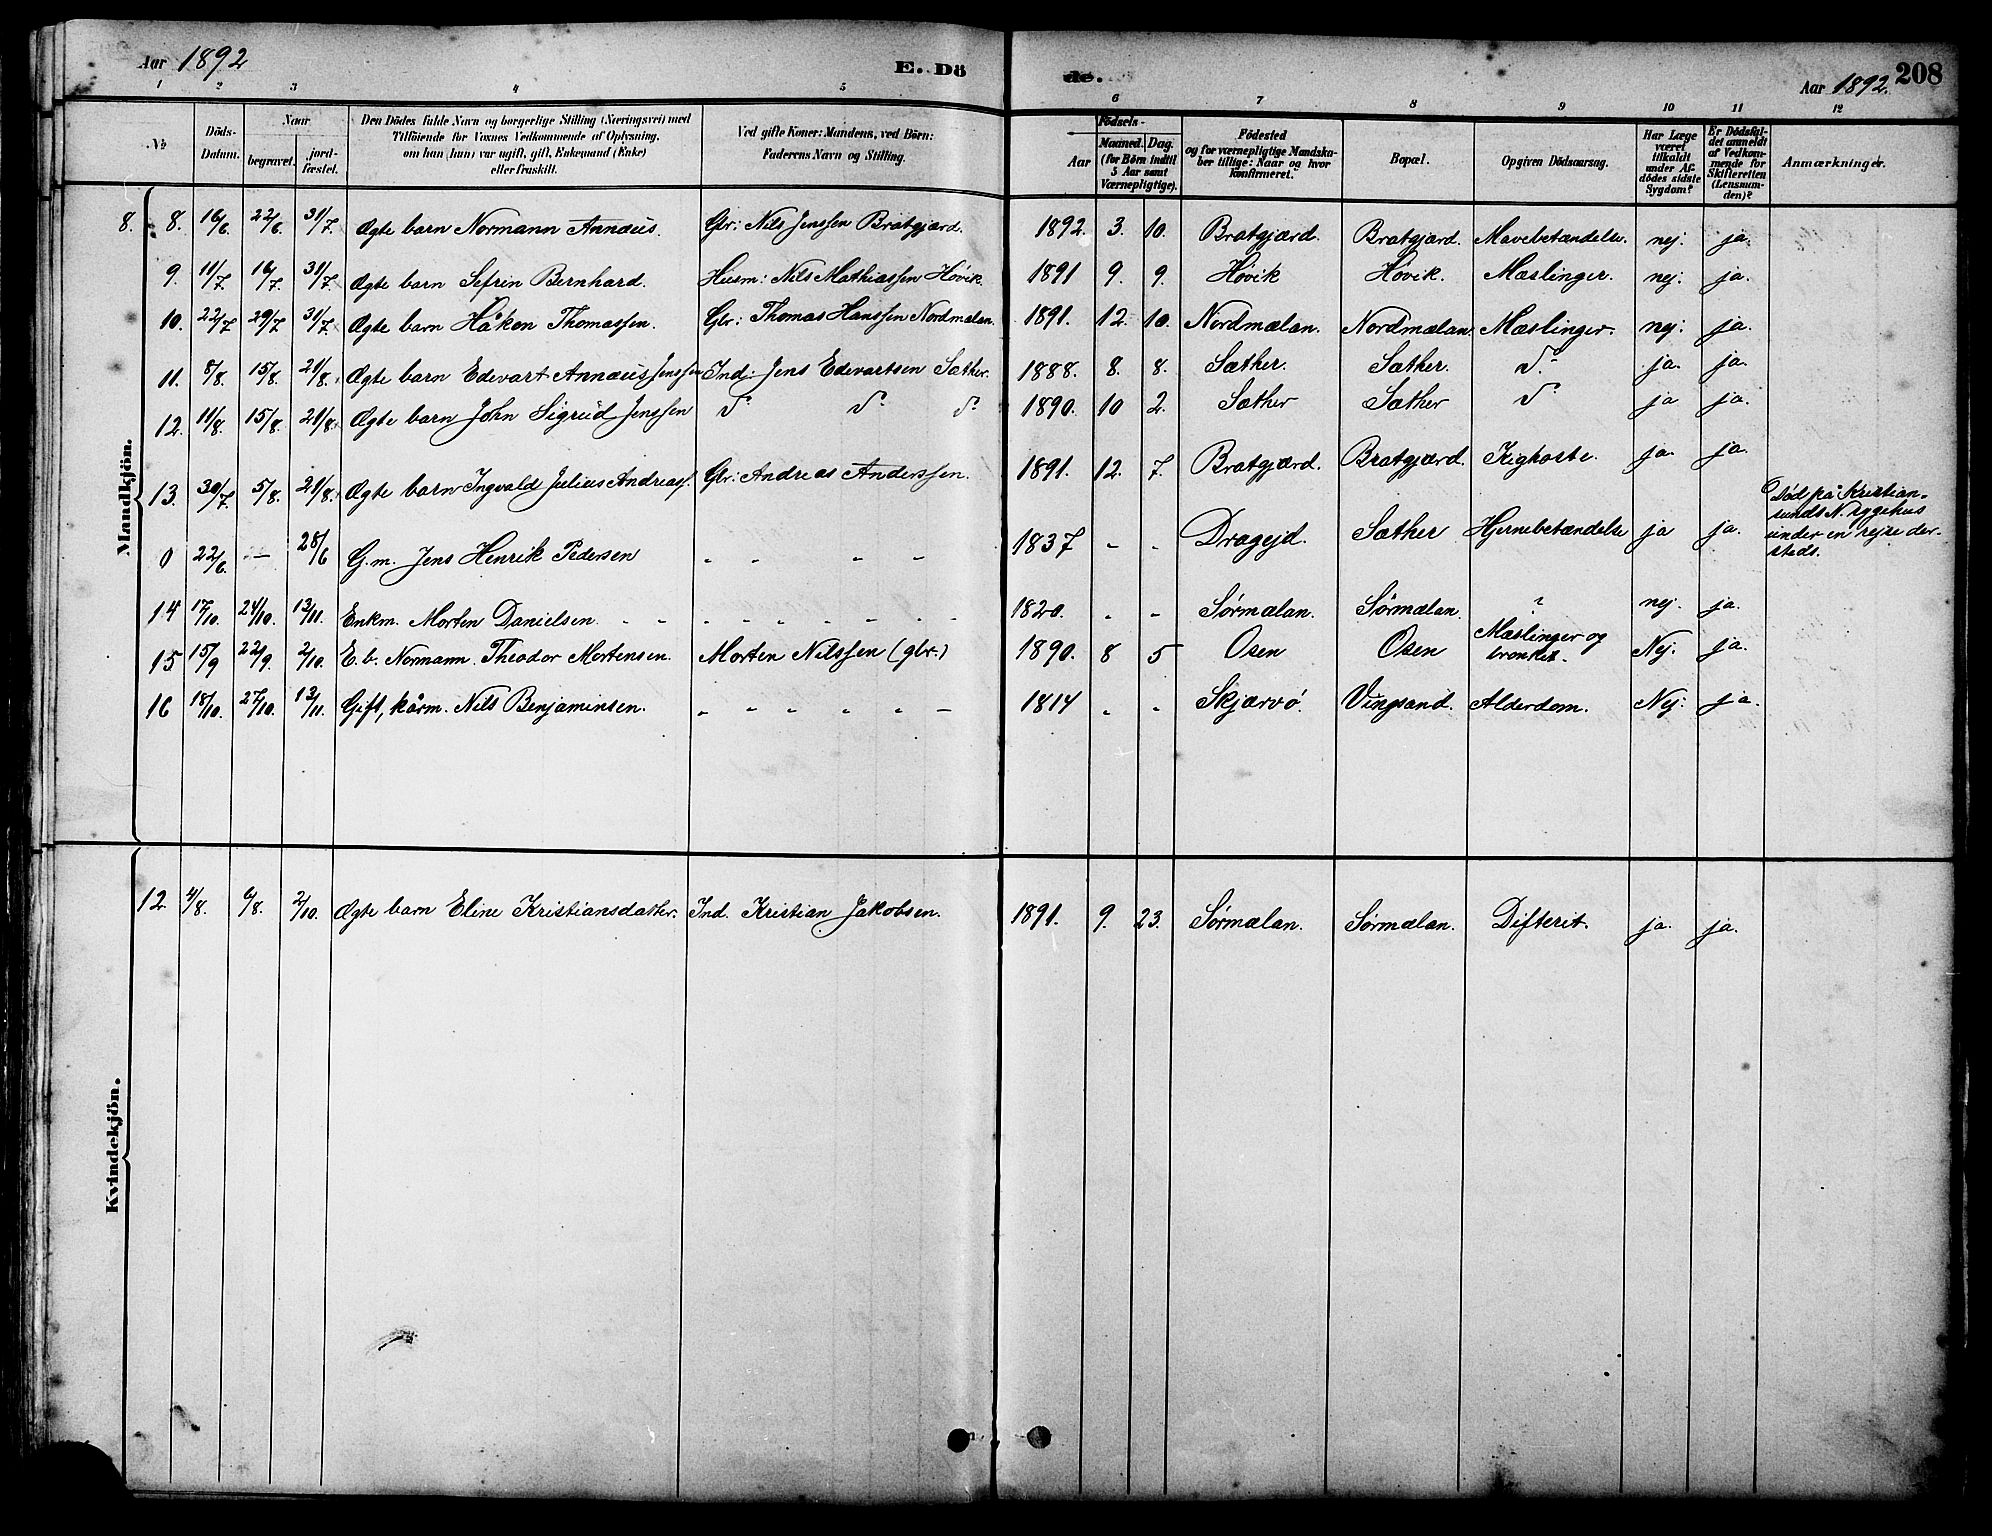 Aar 1892
E. Dö
de.
Aar 1892.
208
1 2 3 4 5 6 7 8 9 10 11 12
No
Döds-Datum.
Naar
begravet.
jord-fæstet.
Den Dödes fulde Navn og borgerlige Stilling (Næringsvei) med
Tilföiende for Voxnes Vedkommende af Oplysning,
om han (hun) var ugift, gift, Enkemand (Enke)
eller fraskilt.
Ved gifte Koner: Mandens, ved Börn:
Faderens Navn og Stilling.
Födsels-
Aar
Maaned. Dag.
(for Börn indtil
5 Aar samt
Værnepligtige).
Födested
og for værnepligtige Mandska-
ber tillige: Naar og hvor
konfirmeret.
Bopæl.
Opgiven Dödsaarsag.
Har Læge
været
tilkaldt
under Af-
dödes sidste
Sygdom?
Er Dödsfal-
det anmeldt
af Vedkom-
mende for
Skifteretten
(Lensman-
den)?
Anmærkninger.
Mandkjön.
8. 8. 16/6 22/6 31/7 Ægte barn Normann Annæus. Gbr: Nils Jenssen Bratgjærd. 1892. 3. 10. Bratgjærd. Bratgjærd. Mavebetændelse. nej. ja.
9. 11/7 16/7 31/7 Ægte barn Sefrin Bernhard. Husm: Nils Mathiassen Hövik. 1891 9. 9. Hövik Hövik. Mæslinger. nej. ja.
10. 22/7 29/7 31/7 Ægte barn Håkon Thomassen. Gbr: Thomas Hanssen Nordmælan. 1891. 12. 10. Nordmælan. Nordmælan. Mæslinger. nej. ja.
11. 8/8. 15/8 21/8. Ægte barn Edevart Annæus Jenssen Ind: Jens Edevartsen Sæther. 1888. 8. 8. Sæther. Sæther. do ja. ja.
12. 11/8. 15/8. 21/8. Ægte barn John Sigrud Jenssen do do do 1890. 10 2. Sæther Sæther do ja ja.
13. 30/7. 5/8. 21/8. Ægte barn Ingvald Julius Andreasf. Gbr: Andreas Anderssen. 1891. 12. 7. Bratgjærd. Bratgjærd. Kighoste. ja. ja.
0 22/6. — 28/6 G.m. Jens Henrik Pedersen - - - - 1837 - - Dragejd. Sæther Hjernebetændelse ja ja. Död på Kristian-
sunds N. sygehus
under en rejse der-
steds.
14 17/10. 24/10. 13/11. Enkm. Morten Danielsen. - - - - - - - 1820. - - Sörmælan. Sörmælan. ? nej. ja.
15 15/9 22/9. 2/10. E.b. Normann Theodor Mortensen. Morten Nilssen (gbr.) 1890. 8 5 Osen Osen Mæslinger og
bronkit. Nej. ja.
16 18/10. 27/10. 13/11. Gift, kårm. Nils Benjaminsen. - - - - - - 1814 - - Skjærvö. Vingsand. Alderdom. Nej. ja.
Kvindekjön.
12. 4/8. 6/8. 2/10. Ægte barn Eline Kristiansdatter. Ind. Kristian Jakobsen. 1891. 9. 23. Sörmælan. Sörmælan. Difterit. ja. ja.